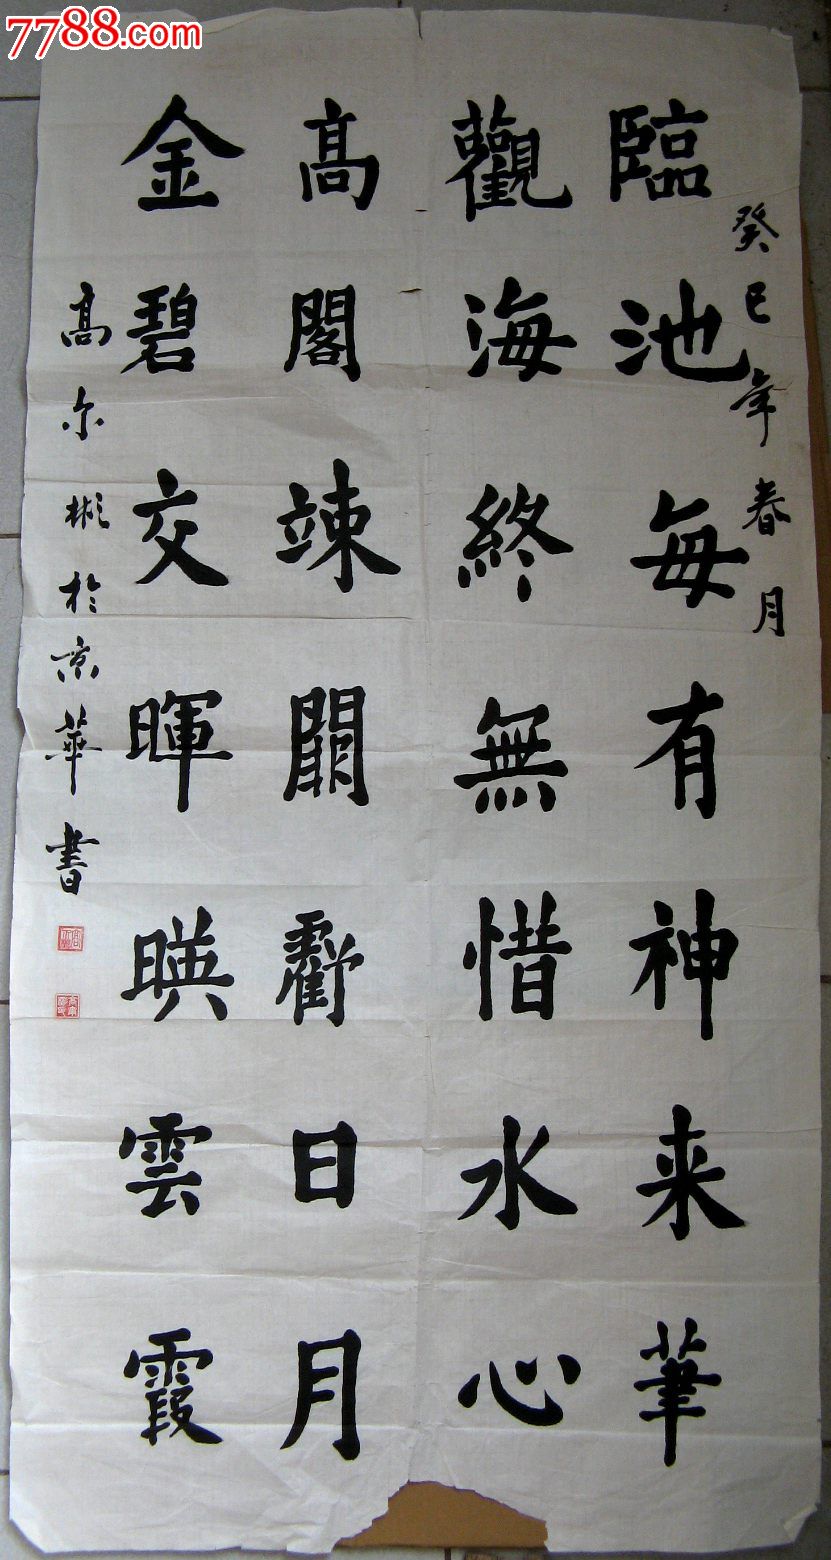 7788.com
癸巳年春月
臨池每有神来筆
觀海終無惜水心
髙閣竦日月
金碧交暉暎雲霞
髙尔彬於京華書